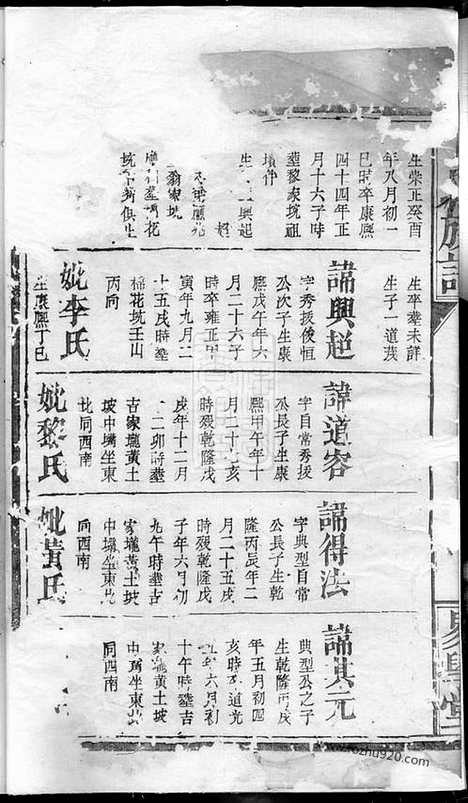 族譜
生崇正癸酉
年八月初一
巳時卒康熙
四十四年正
月十六子時
葬黎家坑祖
墳仲
生 興起
超
翁家坑
坑 俱生
生卒葬未詳
生子一道茂
諱興超
字秀拔俊恒
公次子生康
熙戊午年六
月二十六子
時卒雍正甲
寅年九月二
十五戌時葬
棉花坑壬山
丙向
妣李氏
生康熙丁巳
諱道容
字自常秀拔
公長子生康
熙甲午年十
月二十七亥
時殁乾隆戊
戌年十二月
十二卯時葬
吉家壠黃土
坡中壩坐東
北向西南
妣黎氏
諱得法
字典型自常
公長子生乾
隆丙辰年二
月二十五戌
時殁乾隆戊
子年六月初
九午時葬吉
家壠黃土坡
中壩坐東北
向西南
妣黃氏
諱其元
典型公之子
生乾隆丙戌
年五月初四
亥時 道光
年六月初
十午時葬吉
家壠黃土坡
中壩坐東北
向西南
www.fozhu920.com